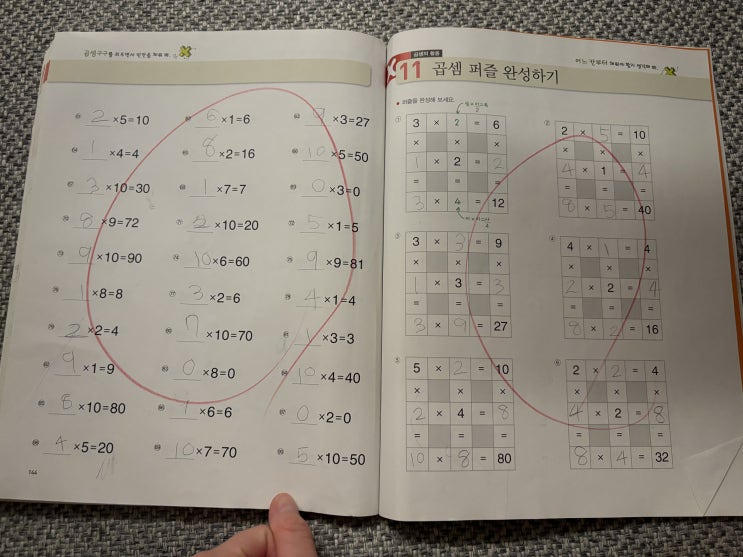 곱셈구구를 외우면서 빈칸을 채워 봐.
2 ×5=10 6 ×1=6 9 ×3=27
1 ×4=4 8 ×2=16 10 ×5=50
3 ×10=30 1 ×7=7 0 ×3=0
8 ×9=72 2 ×10=20 5 ×1=5
9 ×10=90 10 ×6=60 9 ×9=81
1 ×8=8 3 ×2=6 4 ×1=4
2 ×2=4 7 ×10=70 1 ×3=3
9 ×1=9 0 ×8=0 10 ×4=40
8 ×10=80 1 ×6=6 0 ×2=0
4 ×5=20 10 ×7=70 5 ×10=50
144
곱셈의 활용
11 곱셈 퍼즐 완성하기
퍼즐을 완성해 보세요.
①
3 × 2 = 6
× × ×
1 × 2 = 2
= = =
3 × 4 = 12
②
2 × 5 = 10
× × ×
4 × 1 = 4
= = =
8 × 5 = 40
③
3 × 3 = 9
× × ×
1 × 3 = 3
= = =
3 × 9 = 27
④
4 × 1 = 4
× × ×
2 × 2 = 4
= = =
8 × 2 = 16
⑤
5 × 2 = 10
× × ×
2 × 4 = 8
= = =
10 × 8 = 80
⑥
2 × 2 = 4
× × ×
4 × 2 = 8
= = =
8 × 4 = 32